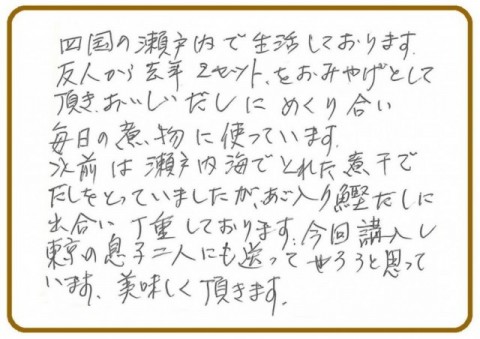 四国の瀬戸内で生活しております。
友人から去年2セット、をおみやげとして
頂き、おいしいだしに めぐり合い
毎日の煮物に使っています。
以前は瀬戸内海でとれた煮干で
だしをとっていましたが、あご入り鰹だしに
出合い 丁重しております。今回講入し
東京の息子二人にも送ってやろうと思って
います、美味しく頂きます。